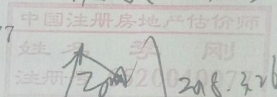 7
中国注册房地产估价师
姓名 李 刚
注册号 3200
2018.3.26